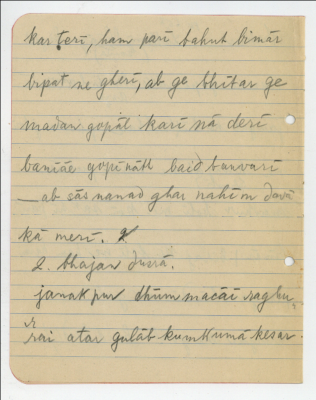 kar terī, ham parī bahut bimār
bipat ne gherī, ab ge bhītar ge
madan gopāl karī nā derī
banīāe gopīnāth baid banvarī
— ab sās nanad ghar nahīm davā
kā merī.
2. bhajan dusrā.
janakpur dhūm macāī raghu,
rai atar gulāb kumkumā kesar.